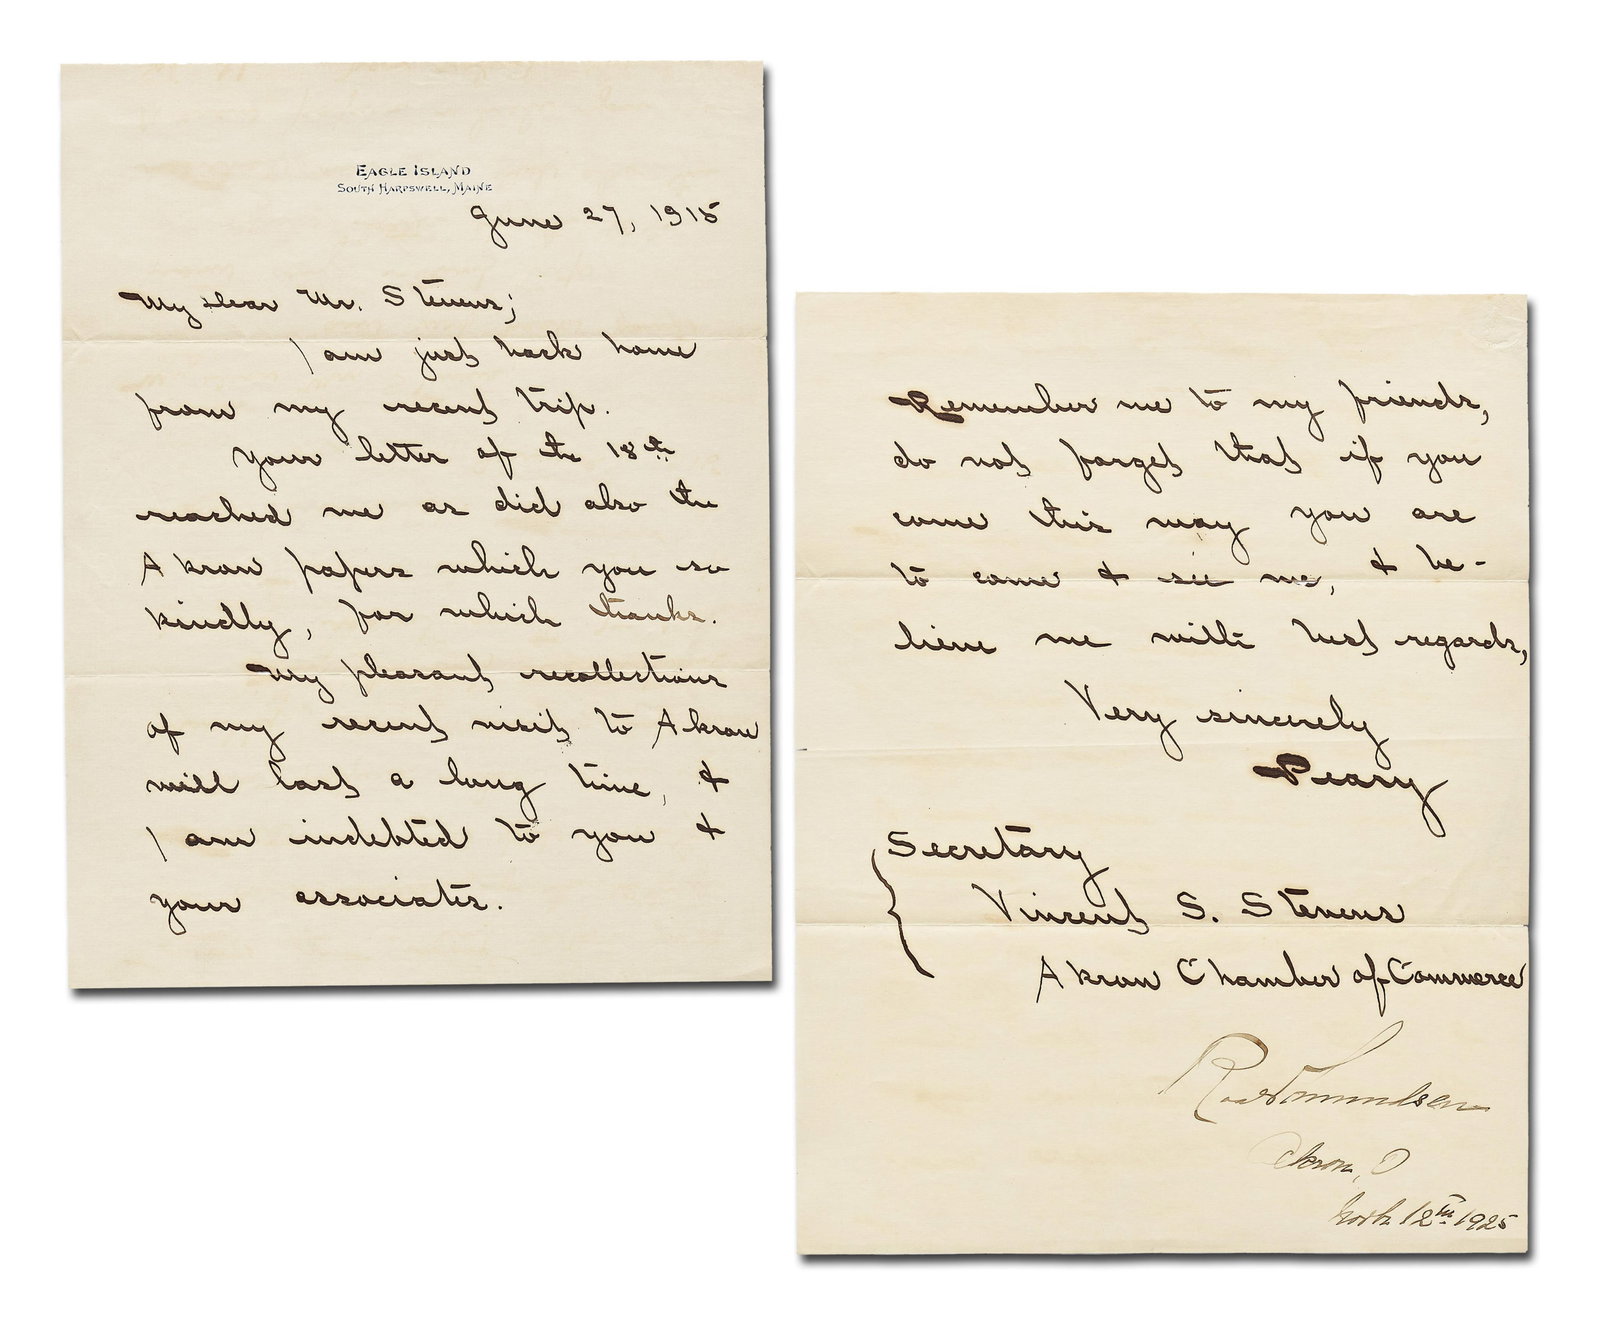 EAGLE ISLAND
SOUTH HARPSWELL, MAINE
June 27, 1915
My dear Mr. Stevens;
I am just back home
from my recent trip.
Your letter of the 18th
reached me as did also the
Akron papers which you so
kindly, for which thanks.
My pleasant recollections
of my recent visit to Akron
will last a long time, &
I am indebted to you &
your associates.
Remember me to my friends,
do not forget that if you
come this way you are
to come & see me, & be-
lieve me with best regards,
Very sincerely
Peary
Secretary
Vincent S. Stevens
Akron Chamber of Commerce
Roald Amundsen
Akron, O
12th 1925